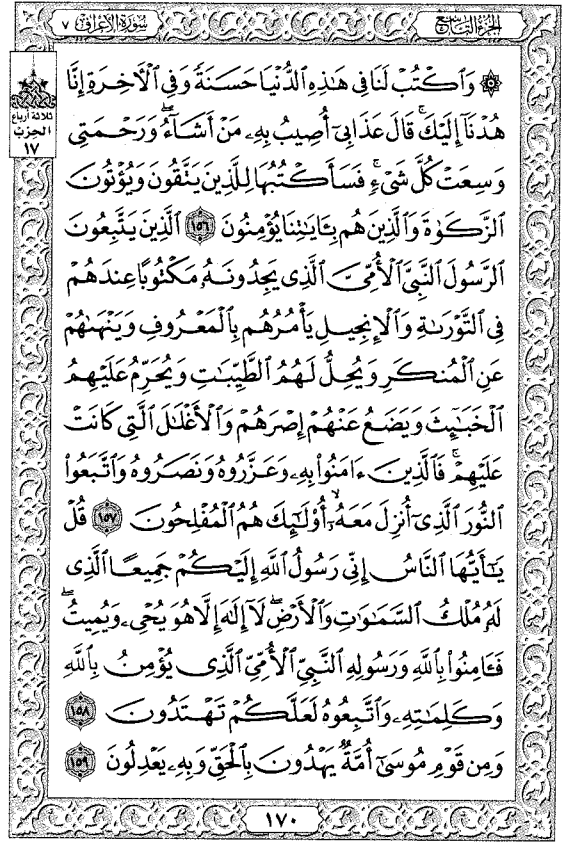 الجزء التاسع
سورة الأعراف ٧
۞ وَٱكۡتُبۡ لَنَا فِي هَٰذِهِ ٱلدُّنۡيَا حَسَنَةٗ وَفِي ٱلۡأٓخِرَةِ إِنَّا
هُدۡنَآ إِلَيۡكَۚ قَالَ عَذَابِيٓ أُصِيبُ بِهِۦ مَنۡ أَشَآءُۖ وَرَحۡمَتِي
وَسِعَتۡ كُلَّ شَيۡءٖۚ فَسَأَكۡتُبُهَا لِلَّذِينَ يَتَّقُونَ وَيُؤۡتُونَ
ٱلزَّكَوٰةَ وَٱلَّذِينَ هُم بِـَٔايَٰتِنَا يُؤۡمِنُونَ ١٥٦ ٱلَّذِينَ يَتَّبِعُونَ
ٱلرَّسُولَ ٱلنَّبِيَّ ٱلۡأُمِّيَّ ٱلَّذِي يَجِدُونَهُۥ مَكۡتُوبًا عِندَهُمۡ
فِي ٱلتَّوۡرَىٰةِ وَٱلۡإِنجِيلِ يَأۡمُرُهُم بِٱلۡمَعۡرُوفِ وَيَنۡهَىٰهُمۡ
عَنِ ٱلۡمُنكَرِ وَيُحِلُّ لَهُمُ ٱلطَّيِّبَٰتِ وَيُحَرِّمُ عَلَيۡهِمُ
ٱلۡخَبَٰٓئِثَ وَيَضَعُ عَنۡهُمۡ إِصۡرَهُمۡ وَٱلۡأَغۡلَٰلَ ٱلَّتِي كَانَتۡ
عَلَيۡهِمۡۚ فَٱلَّذِينَ ءَامَنُواْ بِهِۦ وَعَزَّرُوهُ وَنَصَرُوهُ وَٱتَّبَعُواْ
ٱلنُّورَ ٱلَّذِيٓ أُنزِلَ مَعَهُۥٓ أُوْلَٰٓئِكَ هُمُ ٱلۡمُفۡلِحُونَ ١٥٧ قُلۡ
يَٰٓأَيُّهَا ٱلنَّاسُ إِنِّي رَسُولُ ٱللَّهِ إِلَيۡكُمۡ جَمِيعًا ٱلَّذِي
لَهُۥ مُلۡكُ ٱلسَّمَٰوَٰتِ وَٱلۡأَرۡضِۖ لَآ إِلَٰهَ إِلَّا هُوَ يُحۡيِۦ وَيُمِيتُۖ
فَـَٔامِنُواْ بِٱللَّهِ وَرَسُولِهِ ٱلنَّبِيِّ ٱلۡأُمِّيِّ ٱلَّذِي يُؤۡمِنُ بِٱللَّهِ
وَكَلِمَٰتِهِۦ وَٱتَّبِعُوهُ لَعَلَّكُمۡ تَهۡتَدُونَ ١٥٨
وَمِن قَوۡمِ مُوسَىٰٓ أُمَّةٞ يَهۡدُونَ بِٱلۡحَقِّ وَبِهِۦ يَعۡدِلُونَ ١٥٩
ثلاثة أرباع
الحزب
١٧
١٧٠